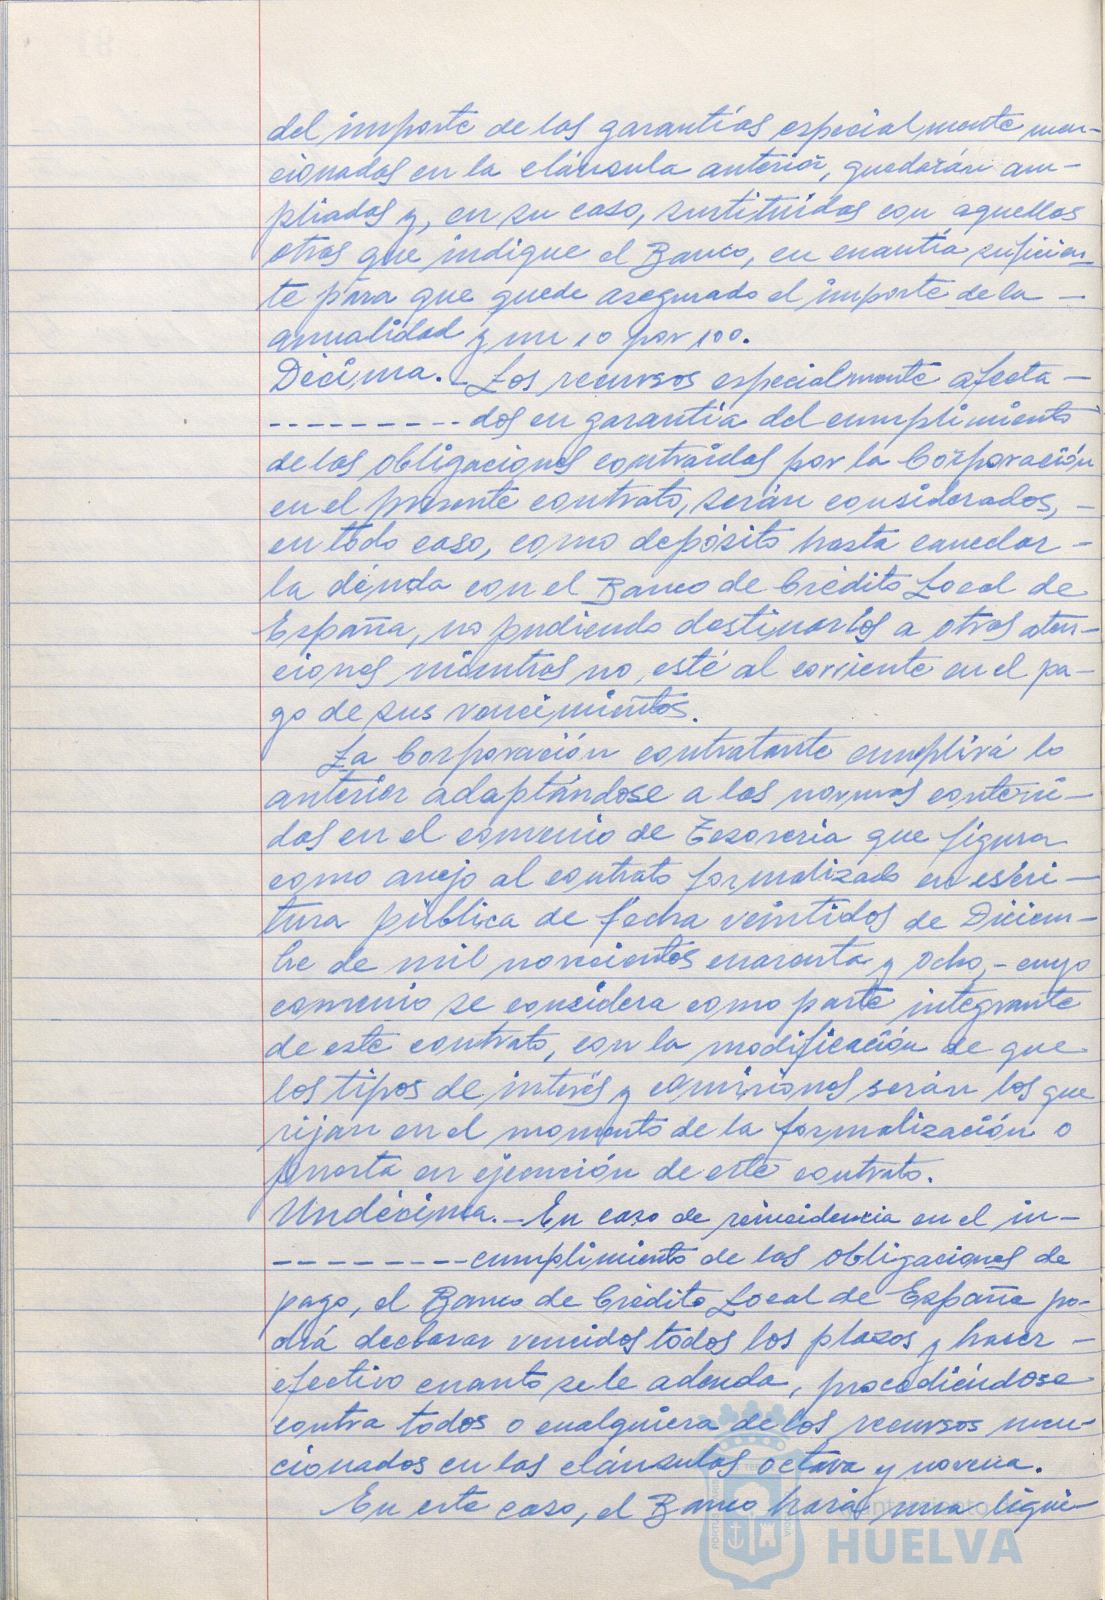 del importe de las garantías especialmente men-
cionadas en la cláusula anterior, quedarán am-
pliadas y, en su caso, sustituídas con aquellas
otras que indique el Banco, en cuantía suficien-
te para que quede asegurado el importe de la —
anualidad y un 10 por 100.
Décima.- Los recursos especialmente afecta —
- - - - - - - - - dos en garantía del cumplimiento
de las obligaciones contraídas por la Corporación
en el presente contrato, serán considerados, -
en todo caso, como depósito hasta cancelar -
la deuda con el Banco de Crédito Local de
España, no pudiendo destinarlos a otras aten-
ciones mientras no esté al corriente en el pa-
go de sus vencimientos.
La Corporación contratante cumplirá lo
anterior adaptándose a las normas conteni-
das en el convenio de Tesorería que figura
como anejo al contrato formalizado en escri-
tura pública de fecha veintidos de Diciem-
bre de mil novecientos cuarenta y ocho,- cuyo
convenio se considera como parte integrante
de este contrato, con la modificación de que
los tipos de interés y comisiones serán los que
rijan en el momento de la formalización o
puesta en ejecución de este contrato.
Undécima.- En caso de reincidencia en el in-
- - - - - - - - - cumplimiento de las obligaciones de
pago, el Banco de Crédito Local de España po-
drá declarar vencidos todos los plazos y hacer -
efectivo cuanto se le adeuda, procediéndose
contra todos o cualquiera de los recursos men-
cionados en las cláusulas octava y novena.
En este caso, el Banco hará una liqui-
Ayuntamiento de
HUELVA